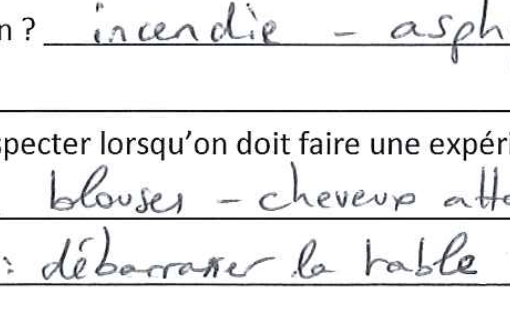 n ? incendie - asph
specter lorsqu'on doit faire une expéri
blouses - cheveux atta
: débarrasser la table